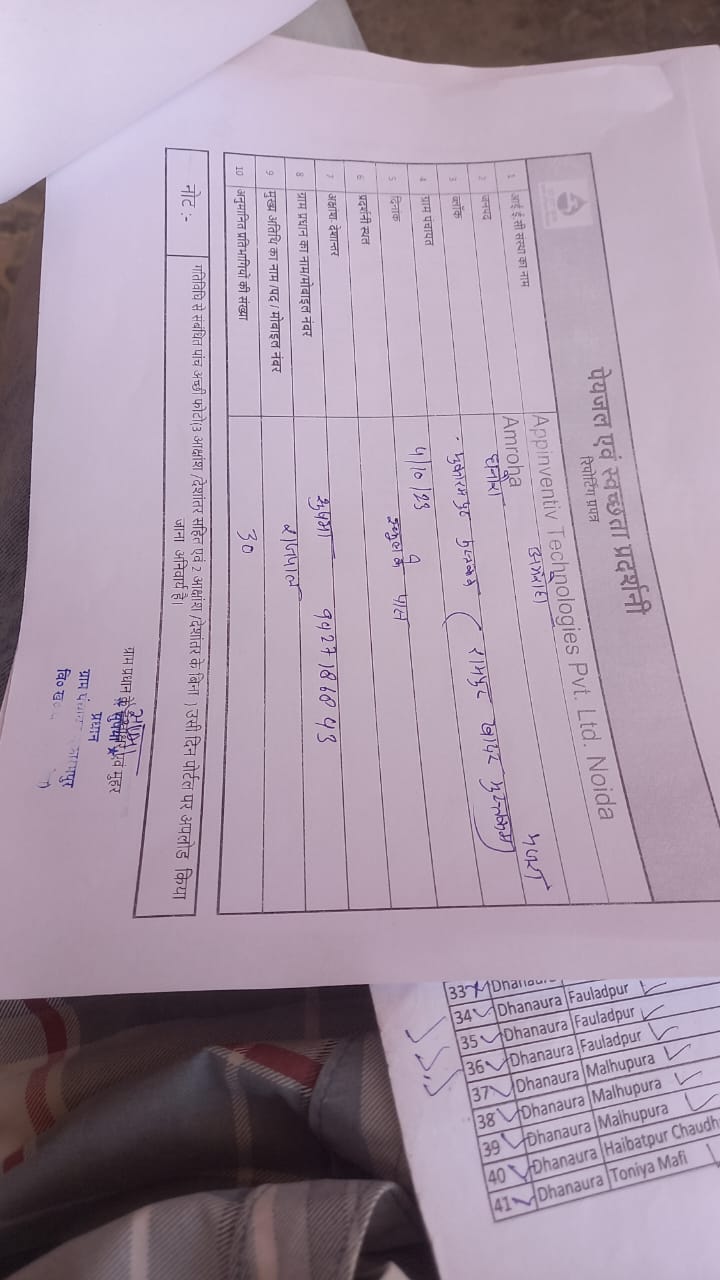 पेयजल एवं स्वच्छता प्रदर्शनी
रिपोर्टिंग प्रपत्र
1 आई ई सी संस्था का नाम Appinventiv Technologies Pvt. Ltd. Noida
2 जनपद Amroha
3 ब्लॉक धनौरा
4 ग्राम पंचायत
5 दिनांक 4/10/23
6 प्रदर्शनी स्थल पास
7 अक्षांश देशान्तर
8 ग्राम प्रधान का नाम/मोबाइल नंबर सुषमा 9427186843
9 मुख्य अतिथि का नाम /पद / मोबाइल नंबर राजपाल
10 अनुमानित प्रतिभागियो की संख्या 30
नोट :- गतिविधि से संबंधित पांच अच्छी फोटो(3 आक्षांश /देशांतर सहित एवं 2 आक्षांश /देशांतर के बिना ) उसी दिन पोर्टल पर अपलोड किया
जाना अनिवार्य है।
ग्राम प्रधान के हस्ताक्षर एवं मुहर
प्रधान
ग्राम
वि० ख०
33 Dhanaura
34 Dhanaura Fauladpur
35 Dhanaura Fauladpur
36 Dhanaura Fauladpur
37 Dhanaura Malhupura
38 Dhanaura Malhupura
39 Dhanaura Malhupura
40 Dhanaura Haibatpur Chaudh
41 Dhanaura Toniya Mafi